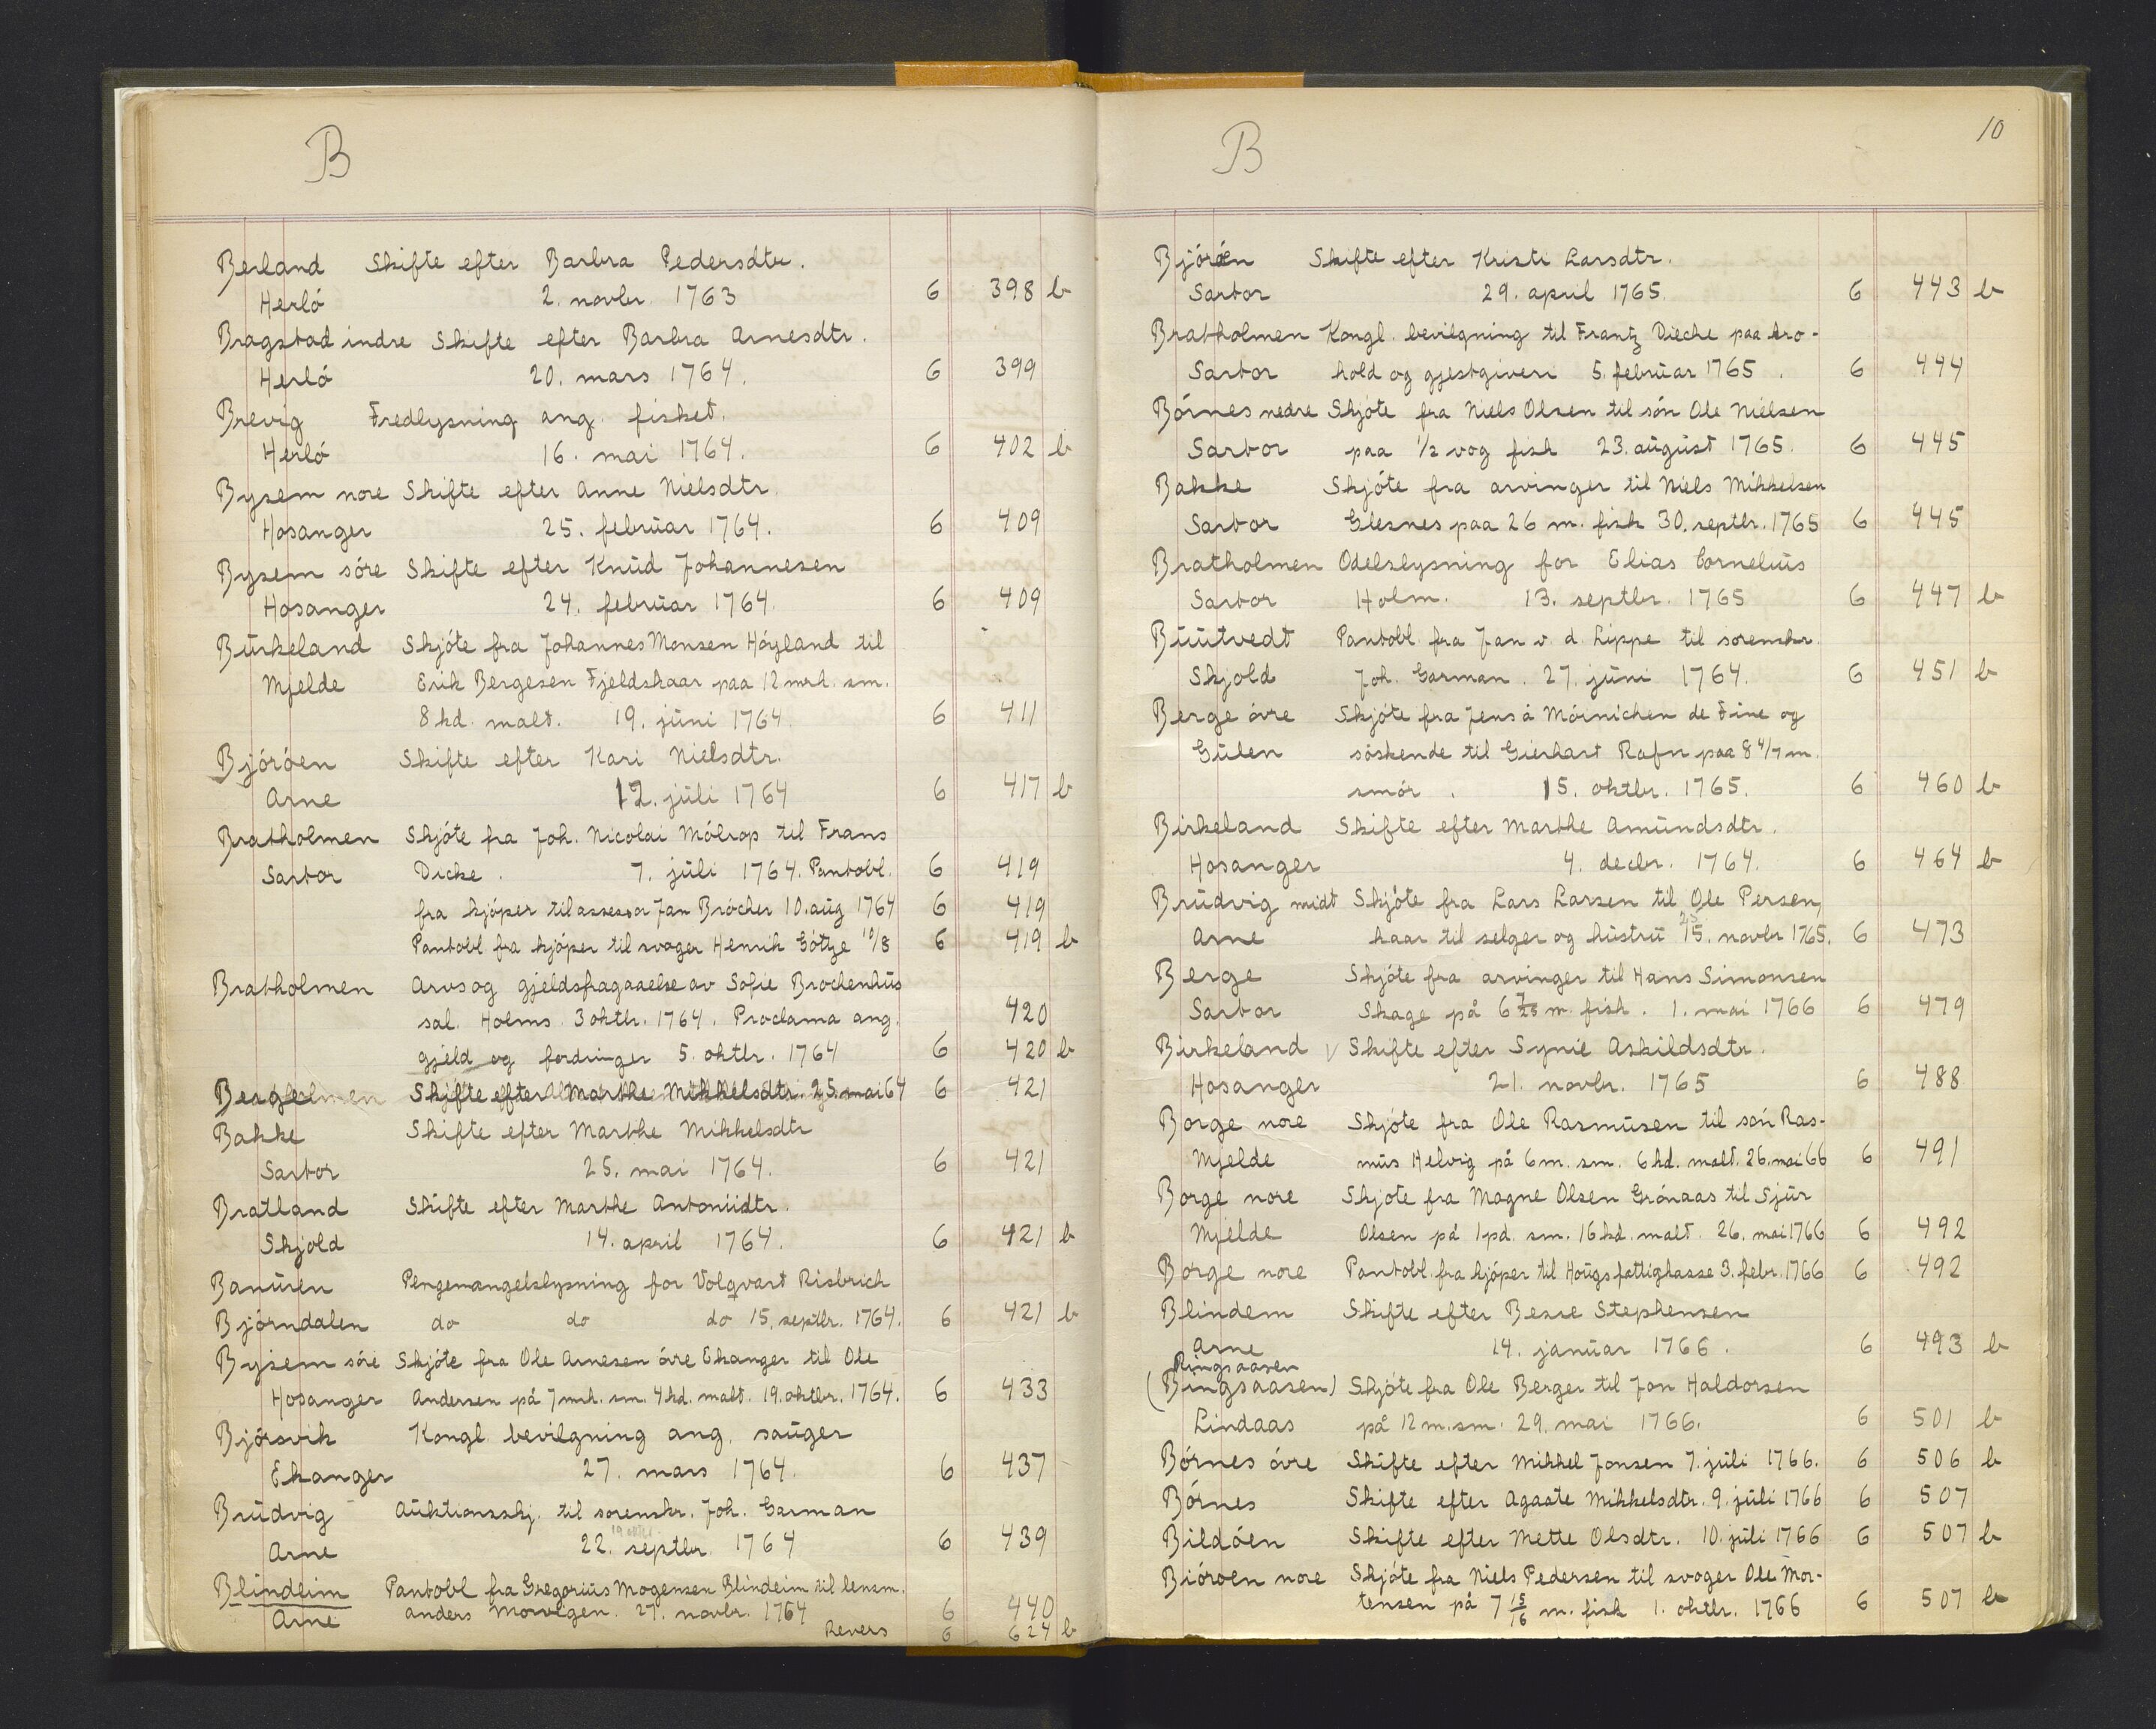 B
Berland Skifte efter Barbra Pedersdtr.
Herló 2. novbr. 1763 6 398 b
Bragstad indre Skifte efter Barbra Arnesdtr.
Herló 20. mars 1764. 6 399
Brevig Fredlysning ang. fisket.
Herló 16. mai 1764. 6 402 b
Bysem nore Skifte efter Anne Nielsdtr.
Hosanger 25. februar 1764. 6 409
Bysem sóre Skifte efter Knud Johannesen
Hosanger 24. februar 1764. 6 409
Burkeland Skjóte fra Johannes Monsen Hóyland til
Mjelde Erik Bergesen Fjeldskaar paa 12 mrk. sm.
8 hd. malt. 19. juni 1764. 6 411
Bjóróen Skifte efter Kari Nielsdtr.
Arne 12. juli 1764 6 417 b
Bratholmen Skjóte fra Joh. Nicolai Mólrop til Frans
Sartor Dicke. 7. juli 1764. Pantobl. 6 419
fra kjóper til assessor Jan Brócher 10. aug 1764 6 419
Pantobl fra kjóper til svoger Henrik Góttze 10/8 6 419 b
Bratholmen Arvs og gjeldsfragaaelse av Sofie Brochenhus
sal. Holms 3 oktbr. 1764. Proclama ang. 420
gjeld og fordringer 5. oktbr. 1764 6 420 b
Berge Skifte efter Marthe Mikkelsdtr. 25. mai 64 6 421
Bakke Skifte efter Marthe Mikkelsdtr
Sartor 25. mai 1764. 6 421
Bratland Skifte efter Marthe Antoniidtr.
Skjold 14. april 1764. 6 421 b
Banuren Pengemangelslysning for Volqvart Risbrich
Bjórndalen do do do 15. septbr. 1764. 6 421 b
Bysem sóre Skjóte fra Ole Arnesen óvre Ekanger til Ole
Hosanger Andersen på 7 mrk. sm. 4 hd. malt. 19. oktbr. 1764. 6 433
Bjórsvik Kongl. bevilgning ang. sauger
Ekanger 27. mars 1764. 6 437
Brudvig Auktionsskj. til sorenskr. Joh. Garman
Arne 22. septbr. 1764 6 439
Blindeim Pantobl fra Gregorius Mogensen Blindeim til lensm.
Arne Anders Morvigen. 27. novbr. 1764 6 440
Revers 6 624 b
B 10
Bjóróen Skifte efter Kristi Larsdtr.
Sartor 29. april 1765. 6 443 b
Bratholmen Kongl. bevilgning til Frantz Diecke paa kro-
Sartor hold og gjestgiveri 5. februar 1765. 6 444
Bórnes nedre Skjóte fra Niels Olsen til són Ole Nielsen
Sartor paa 1/2 vog fisk 23. august 1765. 6 445
Bakke Skjóte fra arvinger til Niels Mikkelsen
Sartor Glesnes paa 26 m. fisk 30. septbr. 1765 6 445
Bratholmen Odelslysning for Elias Cornelius
Sartor Holm. 13. septbr. 1765 6 447 b
Buutvedt Pantobl. fra Jan v. d. Lippe til sorenskr.
Skjold Joh. Garman. 27. juni 1764. 6 451 b
Berge óvre Skjóte fra Jens á Móinichen de Fine og
Gulen sóskende til Gierhart Rafn paa 8 4/7 m.
smór. 15. oktbr. 1765. 6 460 b
Birkeland Skifte efter Marthe Amundsdtr.
Hosanger 4. decbr. 1764. 6 464 b
Brudvig midt Skjóte fra Lars Larsen til Ole Persen,
25.
Arne kaar til selger og hustru 15. novbr 1765. 6 473
Berge Skjóte fra arvinger til Hans Simonsen
Sartor Skage på 6 m. fisk. 1. mai 1766 6 479
Birkeland Skifte efter Synie Askildsdtr.
Hosanger 21. novbr. 1765 6 488
Borge nore Skjóte fra Ole Rasmusen til són Ras-
Mjelde mus Helvig på 6 m. sm. 6 hd. malt. 26. mai 66 6 491
Borge nore Skjote fra Magne Olsen Grónaas til Sjur
Mjelde Olsen på 1 pd. sm. 16 hd. malt. 26. mai 1766 6 492
Borge nore Pantobl. fra kjóper til Hougs fattigkasse 3. febr. 1766 6 492
Blindem Skifte efter Besse Stephensen
Arne 14. januar 1766. 6 493 b
Ringsaasen
(Bingsaasen) Skjóte fra Ole Berger til Jon Haldorsen
Lindaas på 12 m. sm. 29. mai 1766. 6 501 b
Bórnes óvre Skifte efter Mikkel Jonsen 7. juli 1766. 6 506 b
Bórnes Skifte efter Agaate Mikkelsdtr. 9. juli 1766 6 507
Bildóen Skifte efter Mette Olsdtr. 10. juli 1766 6 507 b
Bióroen nore Skjóte fra Niels Pedersen til svoger Ole Mor-
tensen på 7 5/6 m. fisk 1. oktbr. 1766 6 507 b